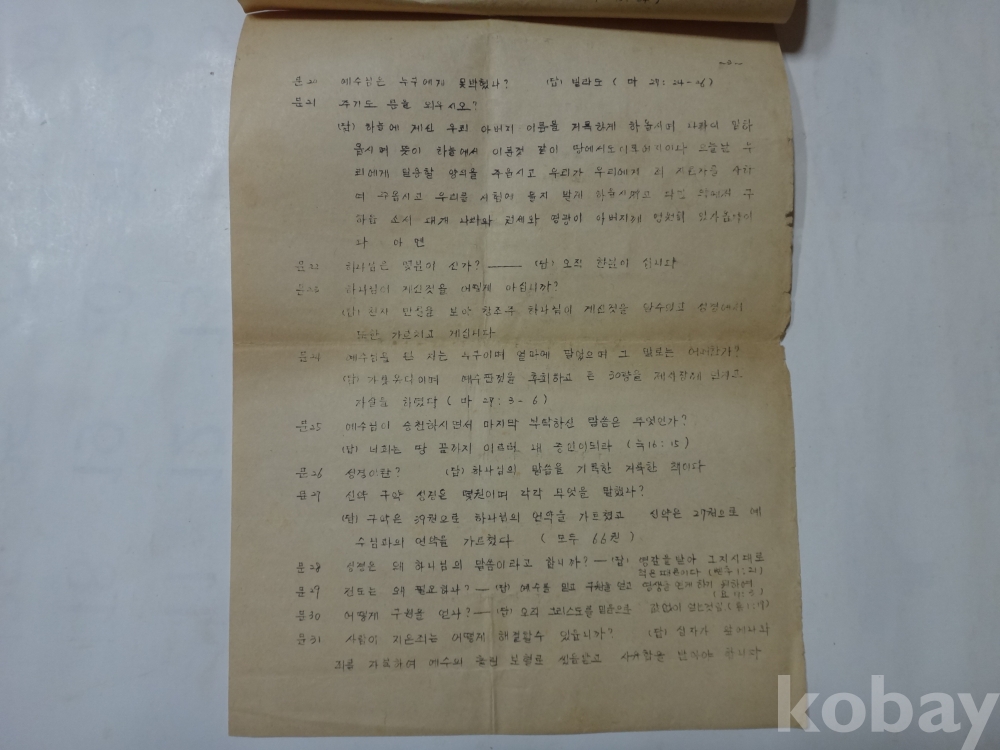 문20 예수님은 누구에게 못박혔나? (답) 빌라도 ( 마 27 : 24 - 26 )
문21 주기도 문을 외우시오?
(답) 하늘에 계신 우리 아버지 이름을 거룩하게 하옵시며 나라이 임하
옵시며 뜻이 하늘에서 이룬것 같이 땅에서도 이루어지이다 오늘날 우
리에게 일용할 양식을 주옵시고 우리가 우리에게 죄 지은자를 사하
여 주옵시고 우리를 시험에 들지 말게 하옵시며 다만 악에서 구
하옵 소서 대개 나라와 권세와 영광이 아버지께 영원히 있사옵나이
다 아멘
문22 하나님은 몇분이 신가? —— (답) 오직 한분이 십니다
문23 하나님이 계신것을 어떻게 아십니까?
(답) 만물을 보아 창조주 하나님이 계신것을 알수있고 성경에서
또한 가르치고 계십니다
문24 예수님을 판 자는 누구이며 얼마에 팔았으며 그 말로는 어떠한가?
(답) 가룟유다이며 예수판것을 후회하고 은 30량을 제사장에
자살을 하였다 ( 마 27 : 3 - 6 )
문25 예수님이 승천하시면서 마지막 부탁하신 말씀은 무엇인가?
(답) 너희는 땅 끝까지 이르러 내 증인이되라 ( 16 : 15 )
문26 성경이란? (답) 하나님의 말씀을 기록한 거룩한 책이다
문27 신약 구약 성경은 몇권이며 각각 무엇을 말했나?
(답) 구약은 39권으로 하나님의 언약을 가르쳤고 신약은 27권으로 예
수님과의 언약을 가르쳤다 ( 모두 66권 )
문28 성경은 왜 하나님의 말씀이라고 합니까? — (답) 영감을 받아 그 시대로
적은 때문이다 ( 1:21)
문29 전도는 왜 필요합니까? — (답) 예수를 믿고 구원을 얻고 영생을 얻게 하기 위하여
문30 어떻게 구원을 얻나? — (답) 오직 그리스도를 믿음으로 얻는것임 ( 1:17)
문31 사람이 지은죄는 어떻게 해결할수 있습니까? (답) 십자가 앞에나와
죄를 자복하여 예수의 흘린 보혈로 씻음받고 사유함을 받아야 합니다
kobay